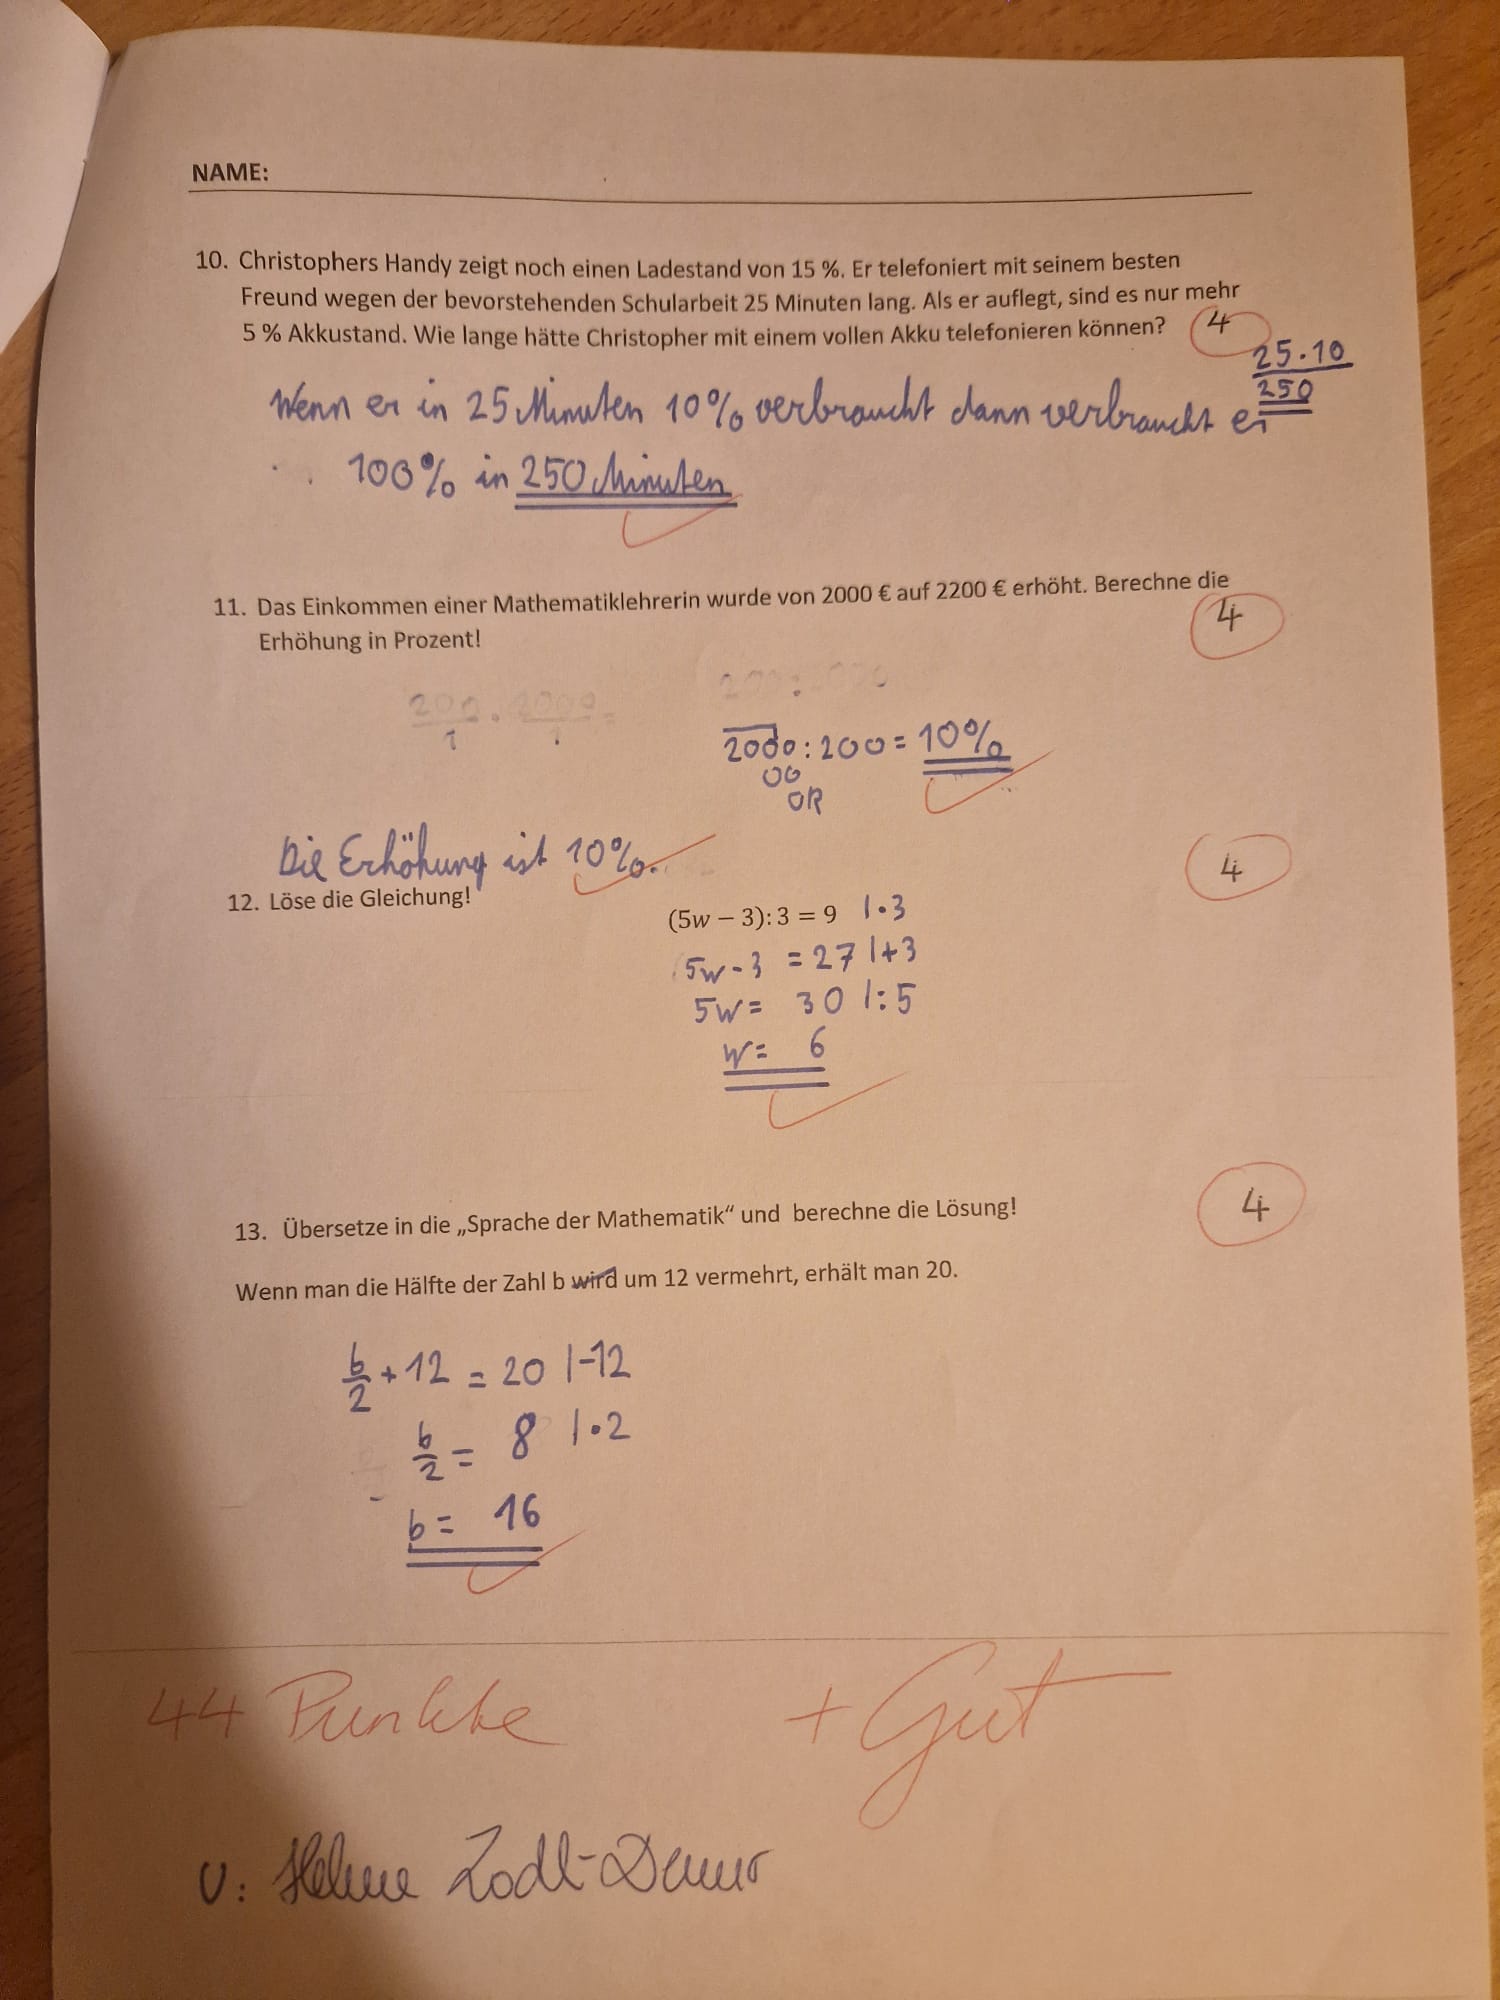 NAME:
10. Christophers Handy zeigt noch einen Ladestand von 15 %. Er telefoniert mit seinem besten
Freund wegen der bevorstehenden Schularbeit 25 Minuten lang. Als er auflegt, sind es nur mehr
5 % Akkustand. Wie lange hätte Christopher mit einem vollen Akku telefonieren können?
4
25·10
250
Wenn er in 25 Minuten 10% verbraucht dann verbraucht er
100% in 250 Minuten
11. Das Einkommen einer Mathematiklehrerin wurde von 2000 € auf 2200 € erhöht. Berechne die
Erhöhung in Prozent!
4
2000:200=10%
00
0R
Die Erhöhung ist 10%.
4
12. Löse die Gleichung!
(5w – 3): 3 = 9 |·3
5w-3 = 27 |+3
5w= 30 |:5
w= 6
13. Übersetze in die „Sprache der Mathematik“ und berechne die Lösung!
4
Wenn man die Hälfte der Zahl b wird um 12 vermehrt, erhält man 20.
b/2 + 12 = 20 |-12
b/2 = 8 |·2
b= 16
44 Punkte + Gut